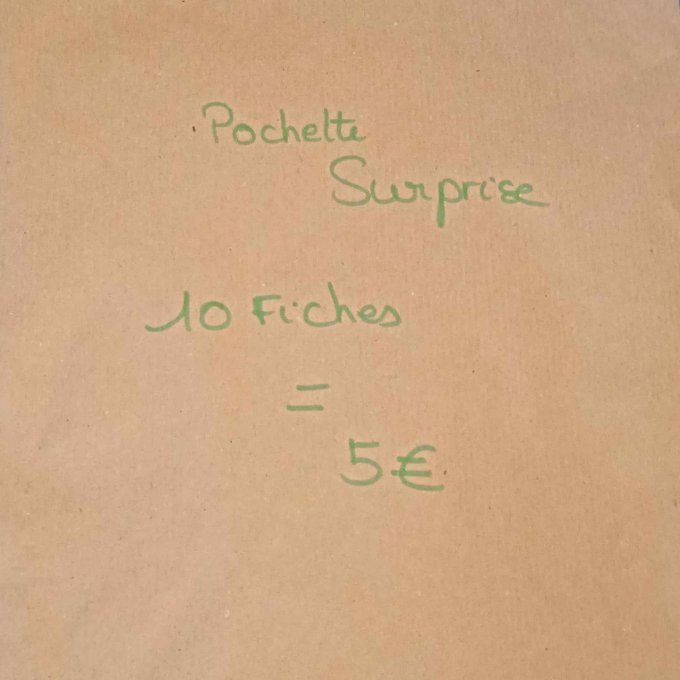 Pochette
Surprise
10 Fiches
=
5€